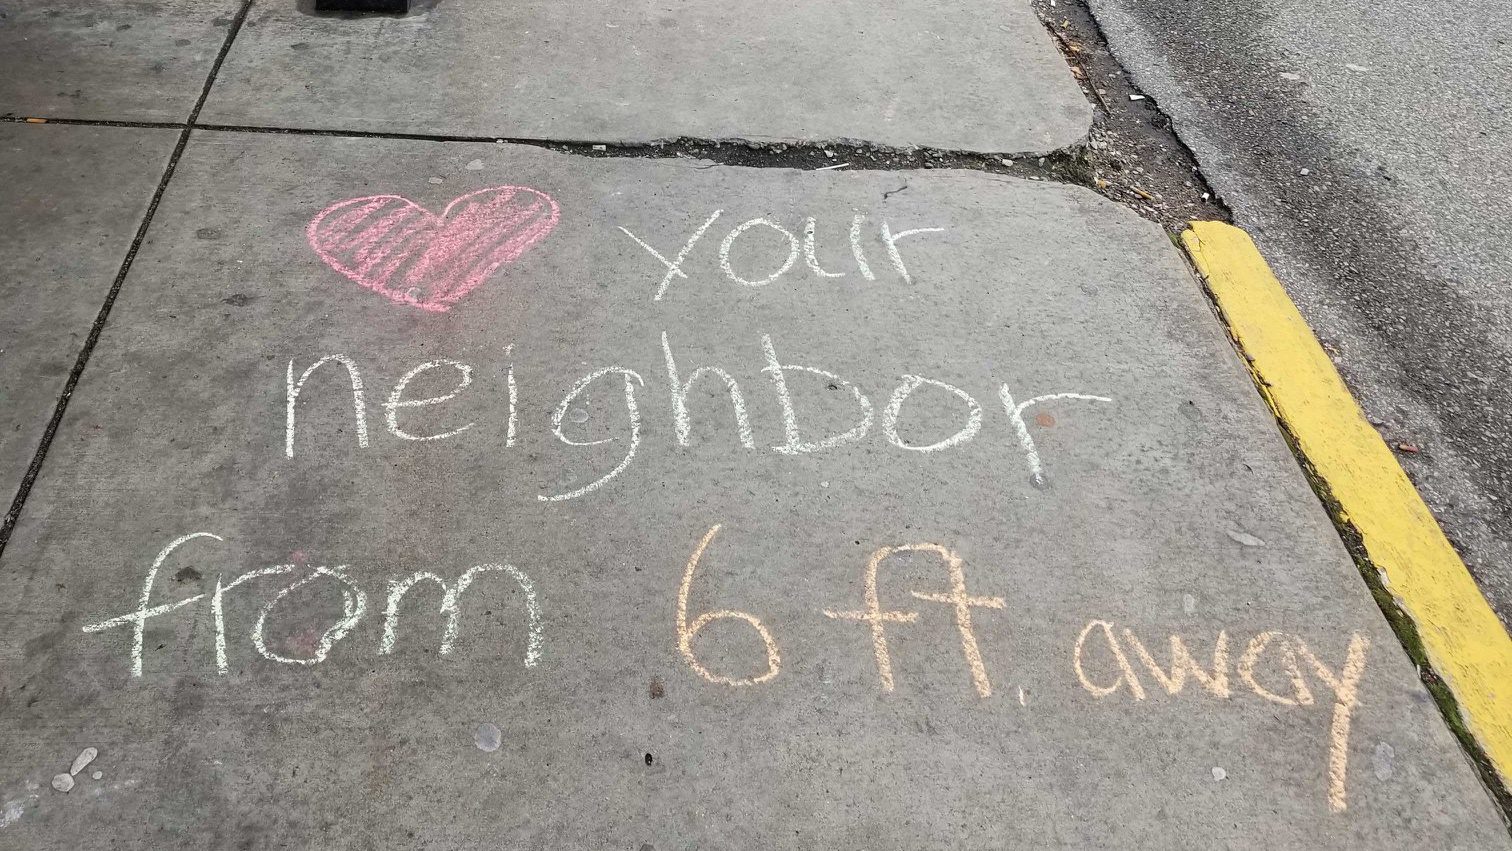 your
neighbor
from 6 ft. away